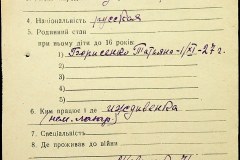 4. Національність русская
5. Родинний стан
при ньому діти до 16 років:
1) Борисенко Татьяна - 1/XI - 27 г.
2)
3)
4)
5)
6. Ким працює і де иждивенка
7. Спеціяльність
8. Де проживав до війни